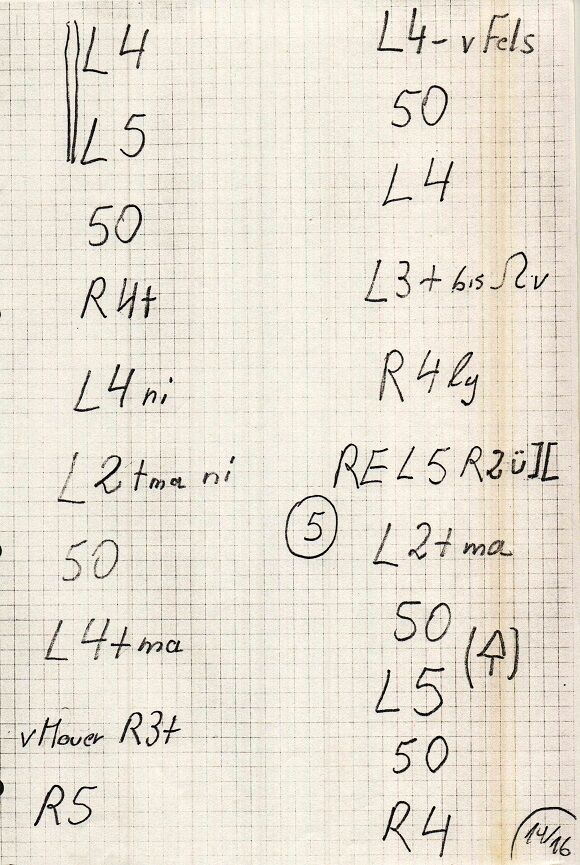 L4
L5
50
R4+
L4 ni
L2+ma ni
50
L4+ma
vMauer R3+
R5
L4-vFels
50
L4
L3+ bis Ω v
R4 lg
RE L5 R2ü][
5
L2+ma
50
L5 (↑)
50
R4
14/16